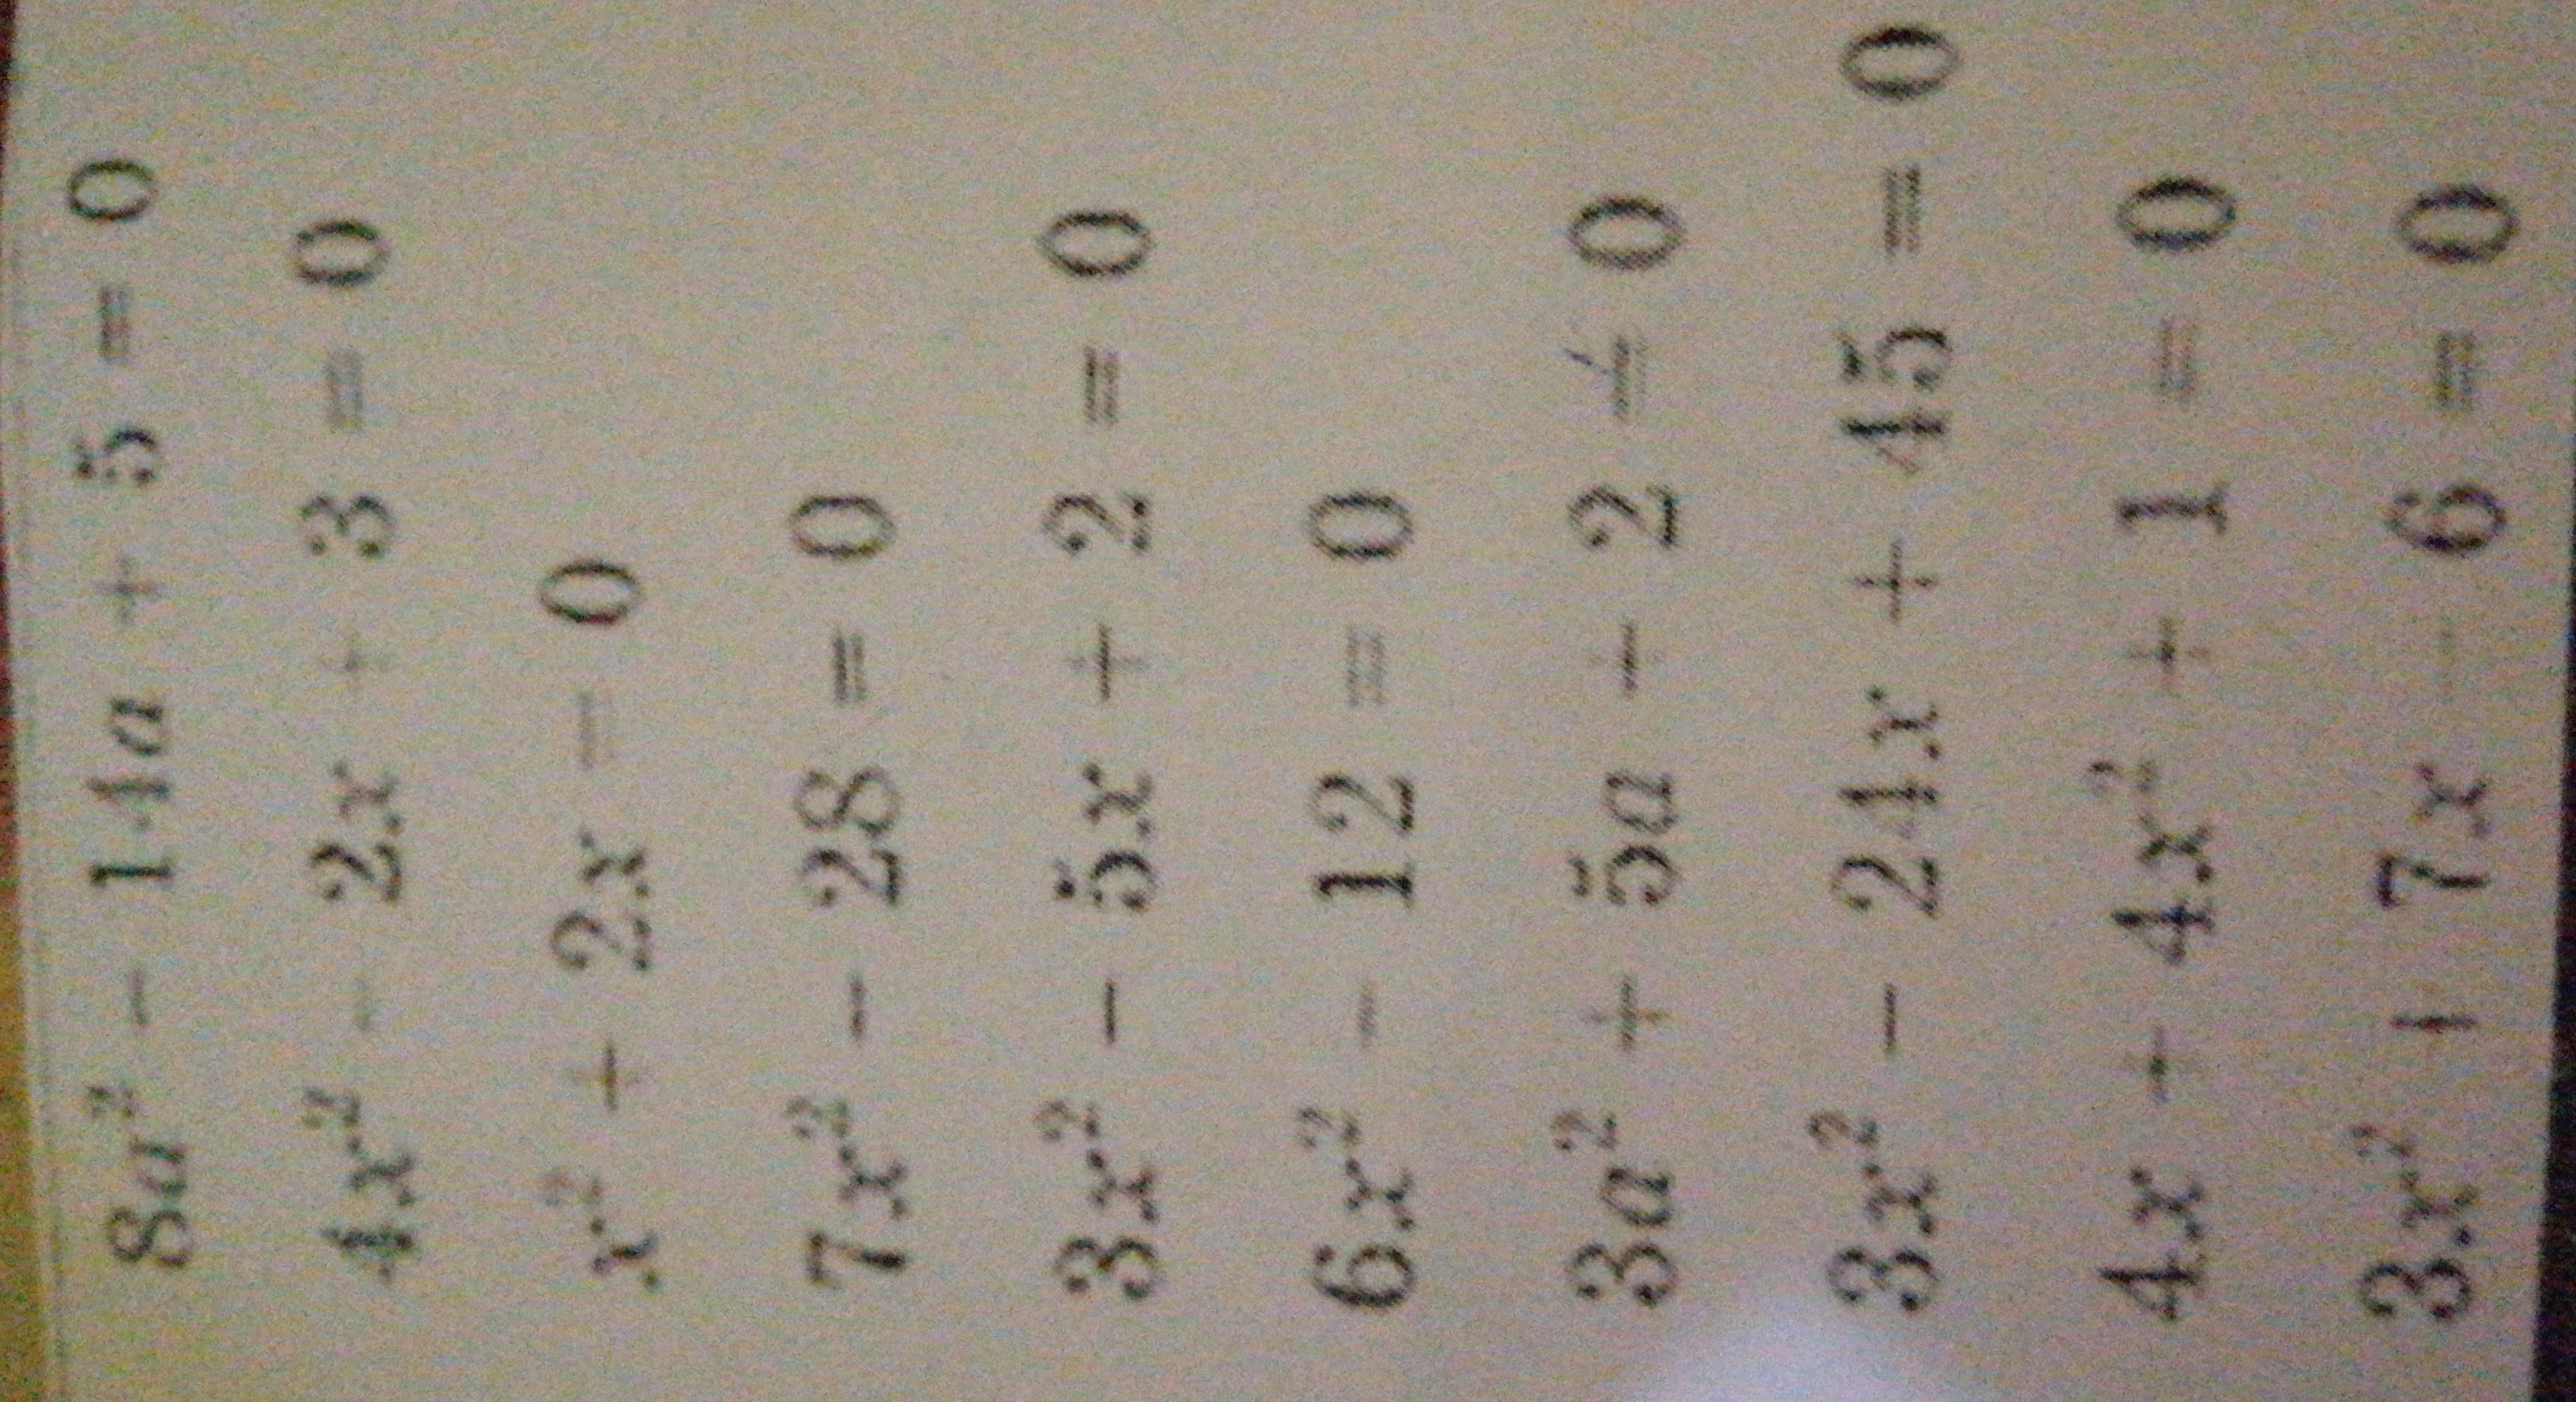 8a² − 14a + 5 = 0
4x² − 2x + 3 = 0
x² + 2x = 0
7x² − 28 = 0
3x² − 5x + 2 = 0
6x² − 12 = 0
3a² + 5a + 2 = 0
3x² − 24x + 45 = 0
4x + 4x² + 1 = 0
3x² + 7x − 6 = 0